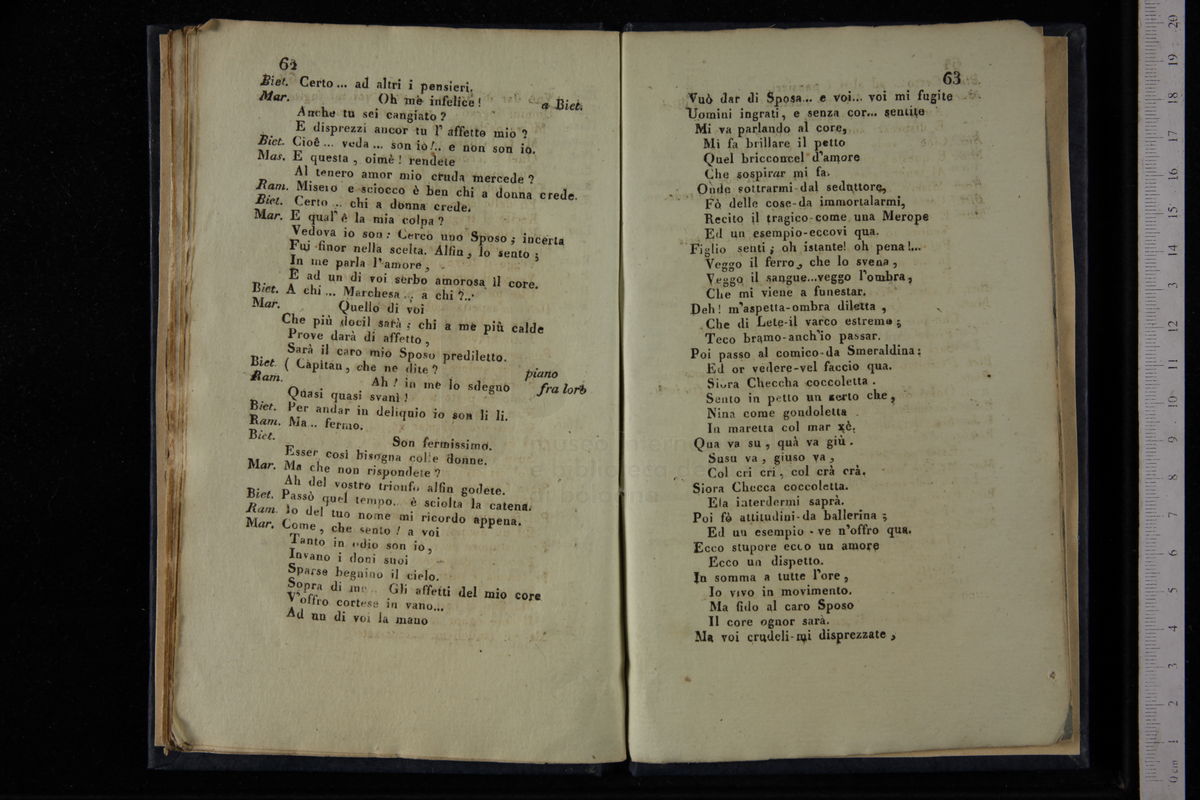 62
Biet. Certo... ad altri i pensieri.
Mar. Oh me infelice! a Biet.
Anche tu sei cangiato?
E disprezzi ancor tu l' affetto mio?
Biet. Cioè... veda... son io!.. e non son io.
Mas. E questa, oimè! rendete
Al tenero amor mio cruda mercede?
Ram. Misero e sciocco è ben chi a donna crede.
Biet. Certo... chi a donna crede.
Mar. E qual' è la mia colpa?
Vedova io son: Cerco uno Sposo; incerta
Fui finor nella scelta. Alfin, lo sento;
In me parla l'amore,
E ad un di voi serbo amorosa il core.
Biet. A chi... Marchesa... a chi?...
Mar. Quello di voi
Che più docil sarà; chi a me più calde
Prove darà di affetto,
Sarà il caro mio Sposo prediletto.
Biet. ( Capitan, che ne dite? piano
Ram. Ah! in me lo sdegno fra loro
Quasi quasi svanì!
Biet. Per andar in deliquio io son lì lì.
Ram. Ma.. fermo.
Biet. Son fermissimo.
Esser così bisogna colle donne.
Mar. Ma che non rispondete?
Ah del vostro trionfo alfin godete.
Biet. Passò quel tempo.. è sciolta la catena.
Ram. Io del tuo nome mi ricordo appena.
Mar. Come, che sento! a voi
Tanto in odio son io,
Invano i doni suoi
Sparse benigno il cielo.
Sopra di me.. Gli affetti del mio core
V'offro cortese in vano...
Ad un di voi la mano
63
Vuò dar di Sposa... e voi... voi mi fugite
Uomini ingrati, e senza cor... sentite
Mi va parlando al core,
Mi fa brillare il petto
Quel bricconcel d'amore
Che sospirar mi fa.
Onde sottrarmi-dal seduttore,
Fò delle cose-da immortalarmi,
Recito il tragico-come una Merope
Ed un esempio-eccovi qua.
Figlio senti; oh istante! oh pena!...
Veggo il ferro, che lo svena,
Veggo il sangue...veggo l'ombra,
Che mi viene a funestar.
Deh! m'aspetta-ombra diletta,
Che di Lete-il varco estremo;
Teco bramo-anch'io passar.
Poi passo al comico-da Smeraldina;
Ed or vedere-vel faccio qua.
Siora Checcha coccoletta.
Sento in petto un certo che,
Nina come gondoletta
In maretta col mar xè.
Qua va su, quà va giù.
Susu va, giuso va,
Col cri cri, col crà crà.
Siora Checca coccoletta.
Ela interdermi saprà.
Poi fò attitudini-da ballerina;
Ed un esempio-ve n'offro qua.
Ecco stupore ecco un amore
Ecco un dispetto.
In somma a tutte l'ore,
Io vivo in movimento.
Ma fido al caro Sposo
Il core ognor sarà.
Ma voi crudeli-mi disprezzate,